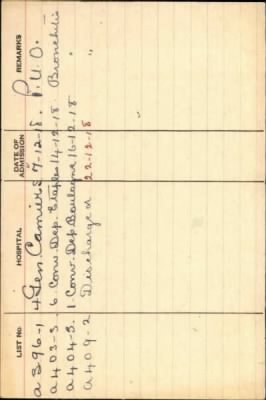 LIST No. HOSPITAL DATE OF ADMISSION REMARKS
a 396-1 4 Gen. Camiers 7-12-18. P.U.O.
a 403-3. 6 Conv. Dep. Etaples 14-12-18 Bronchitis
a 404-5. 1. Conv. Dep. Boulogne 16-12-18 "
a 409-2 Discharged 22-12-18 "